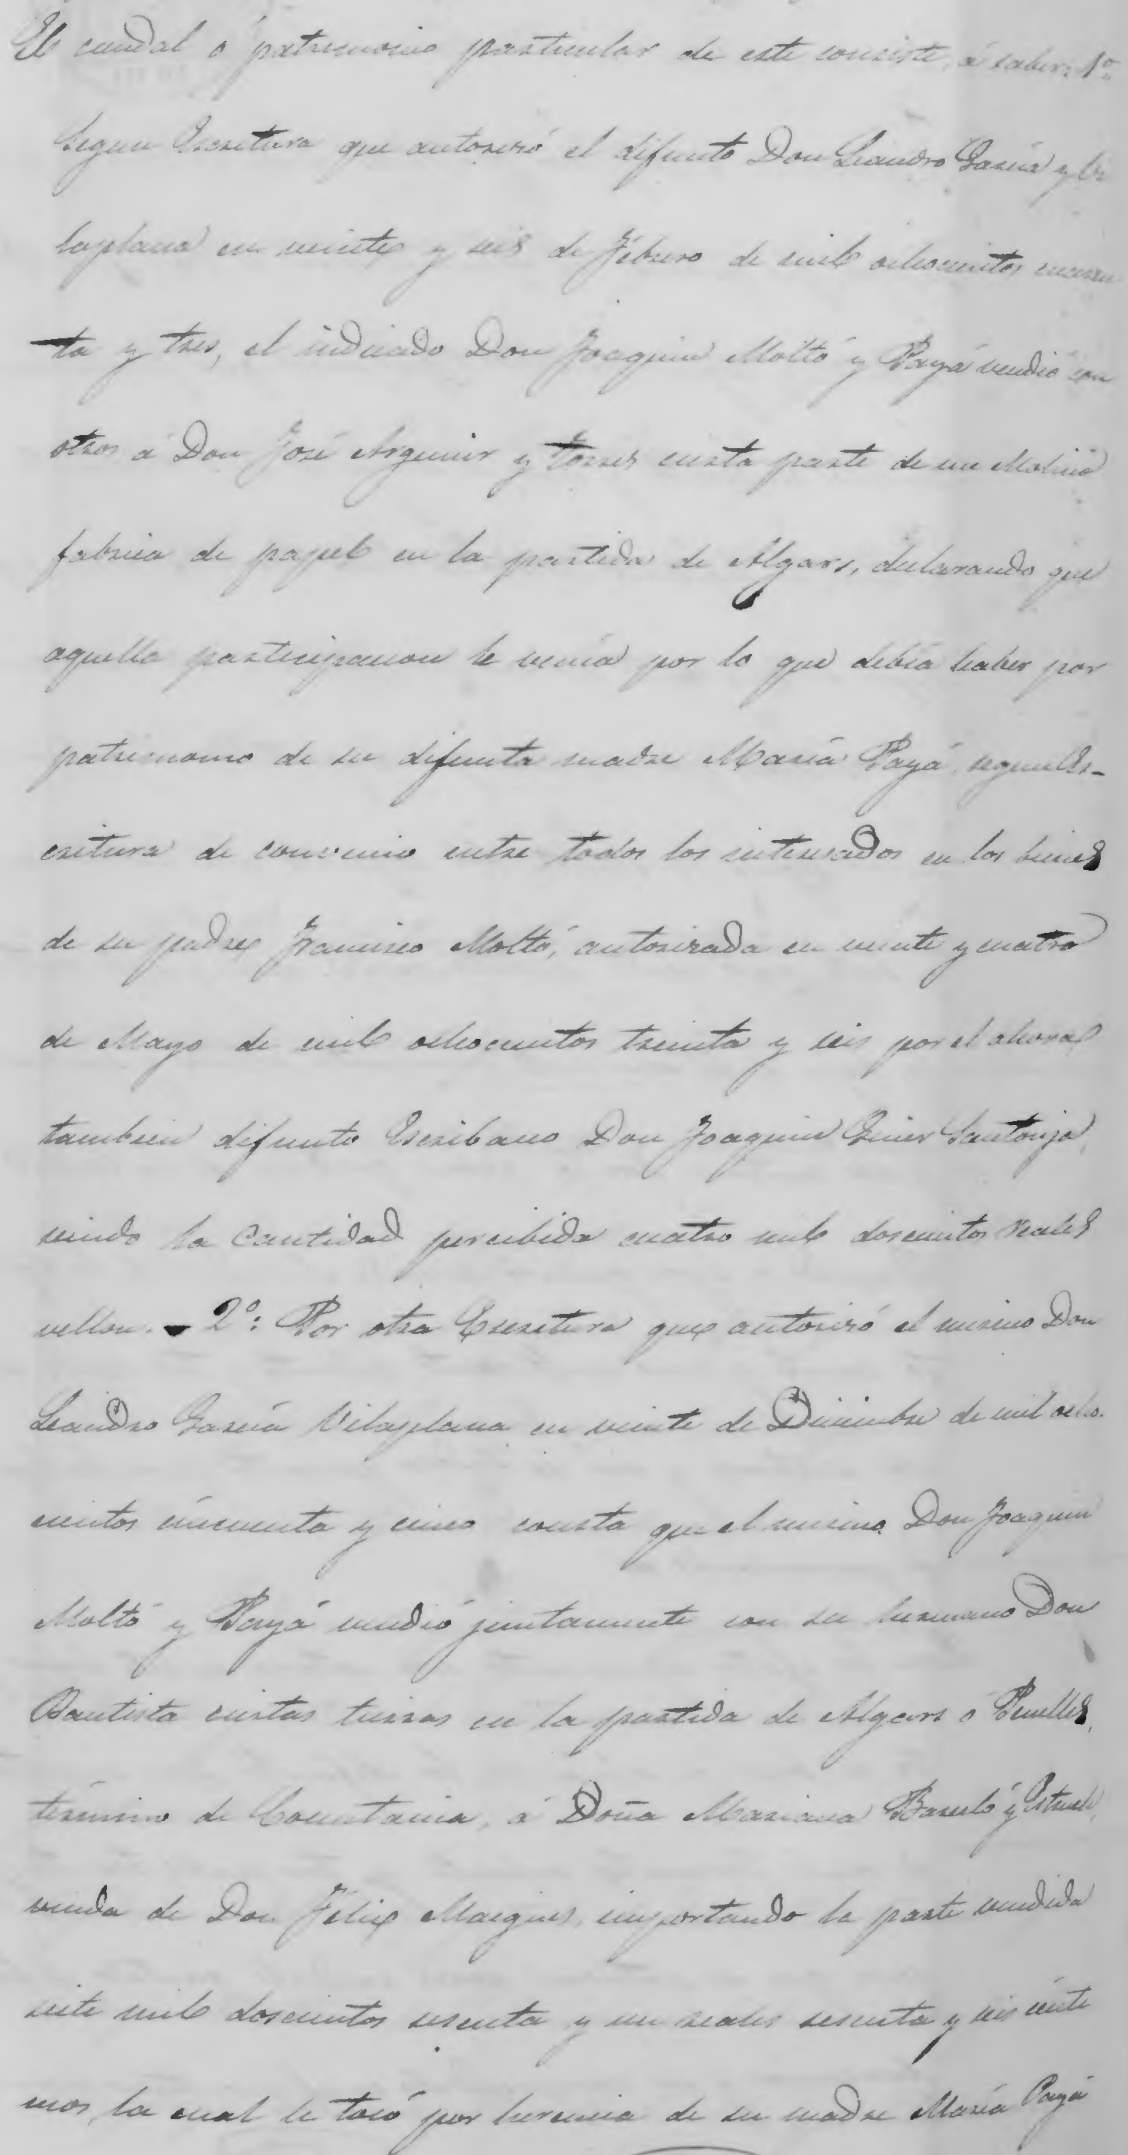 El caudal ó patrimonio particular de este consiste, á saber: 1º:
Segun Escritura que autorizó el difunto Don Leandro García y Vi
laplana en veinte y seis de Febrero de mil ochocientos cuaren
ta y tres, el indicado Don Joaquin Moltó y Payá vendió con
otros á Don José Arguimir y Torres cierta parte de un Molino
fabrica de papel en la partida de Algars, declarando que
aquella participacion le venía por lo que debía haber por
patrimonio de su difunta madre María Payá, segun Es-
critura de convenio entre todos los interesados en los bienes
de su padre Francisco Moltó, autorizada en veinte y cuatro
de Mayo de mil ochocientos treinta y seis por el ahora
tambien difunto Escribano Don Joaquin Giner Santonja,
siendo la Cantidad percibida cuatro mil doscientos reales
vellon. - 2º: Por otra Escritura que autorizó el mismo Don
Leandro García Vilaplana en veinte de Diciembre de mil ocho-
cientos cincuenta y cinco consta que el mismo Don Joaquin
Moltó y Payá vendió juntamente con su hermano Don
Bautista ciertas tierras en la partida de Algars ó Penelles,
término de Cocentaina, á Doña Mariana Barceló y
viuda de Don Félix Maigues, importando la parte vendida
siete mil doscientos sesenta y un reales sesenta y seis cénti
mos, la cual le tocó por herencia de su madre María Payá